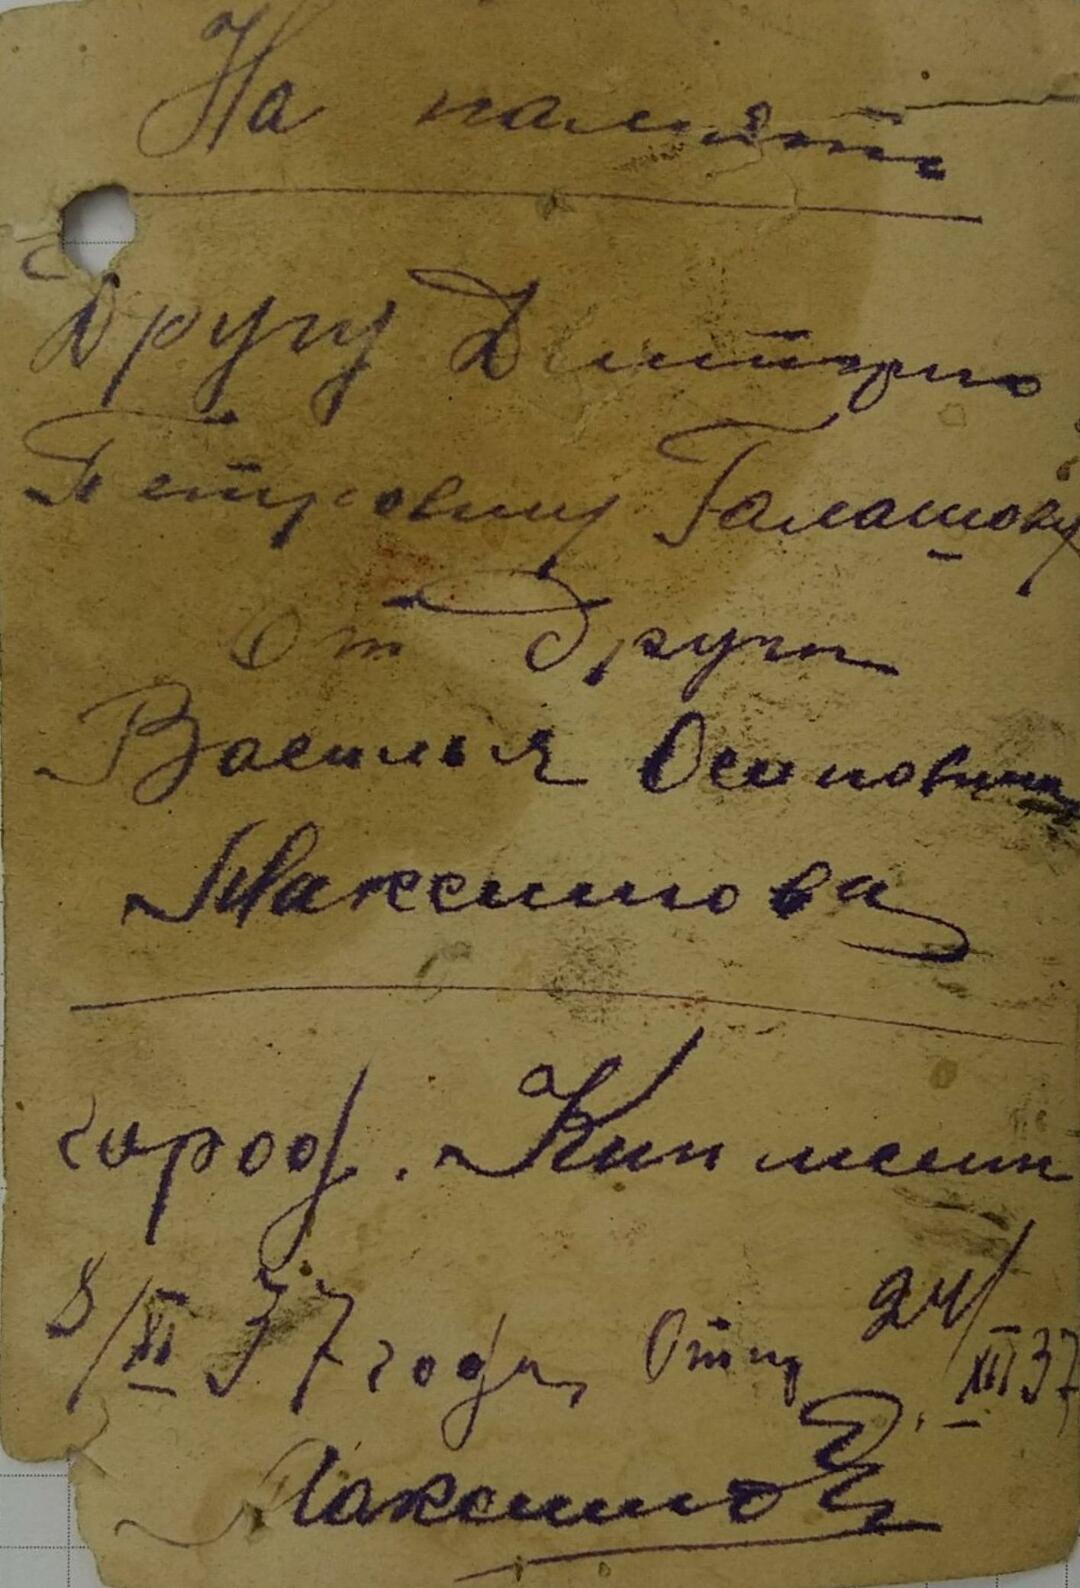 На память
Другу Дмитрию
Петровичу Галашову
От Друга
Василья Осиповича
Максимова
город.
8/XI 37 года, 24/XII 37
Максимов